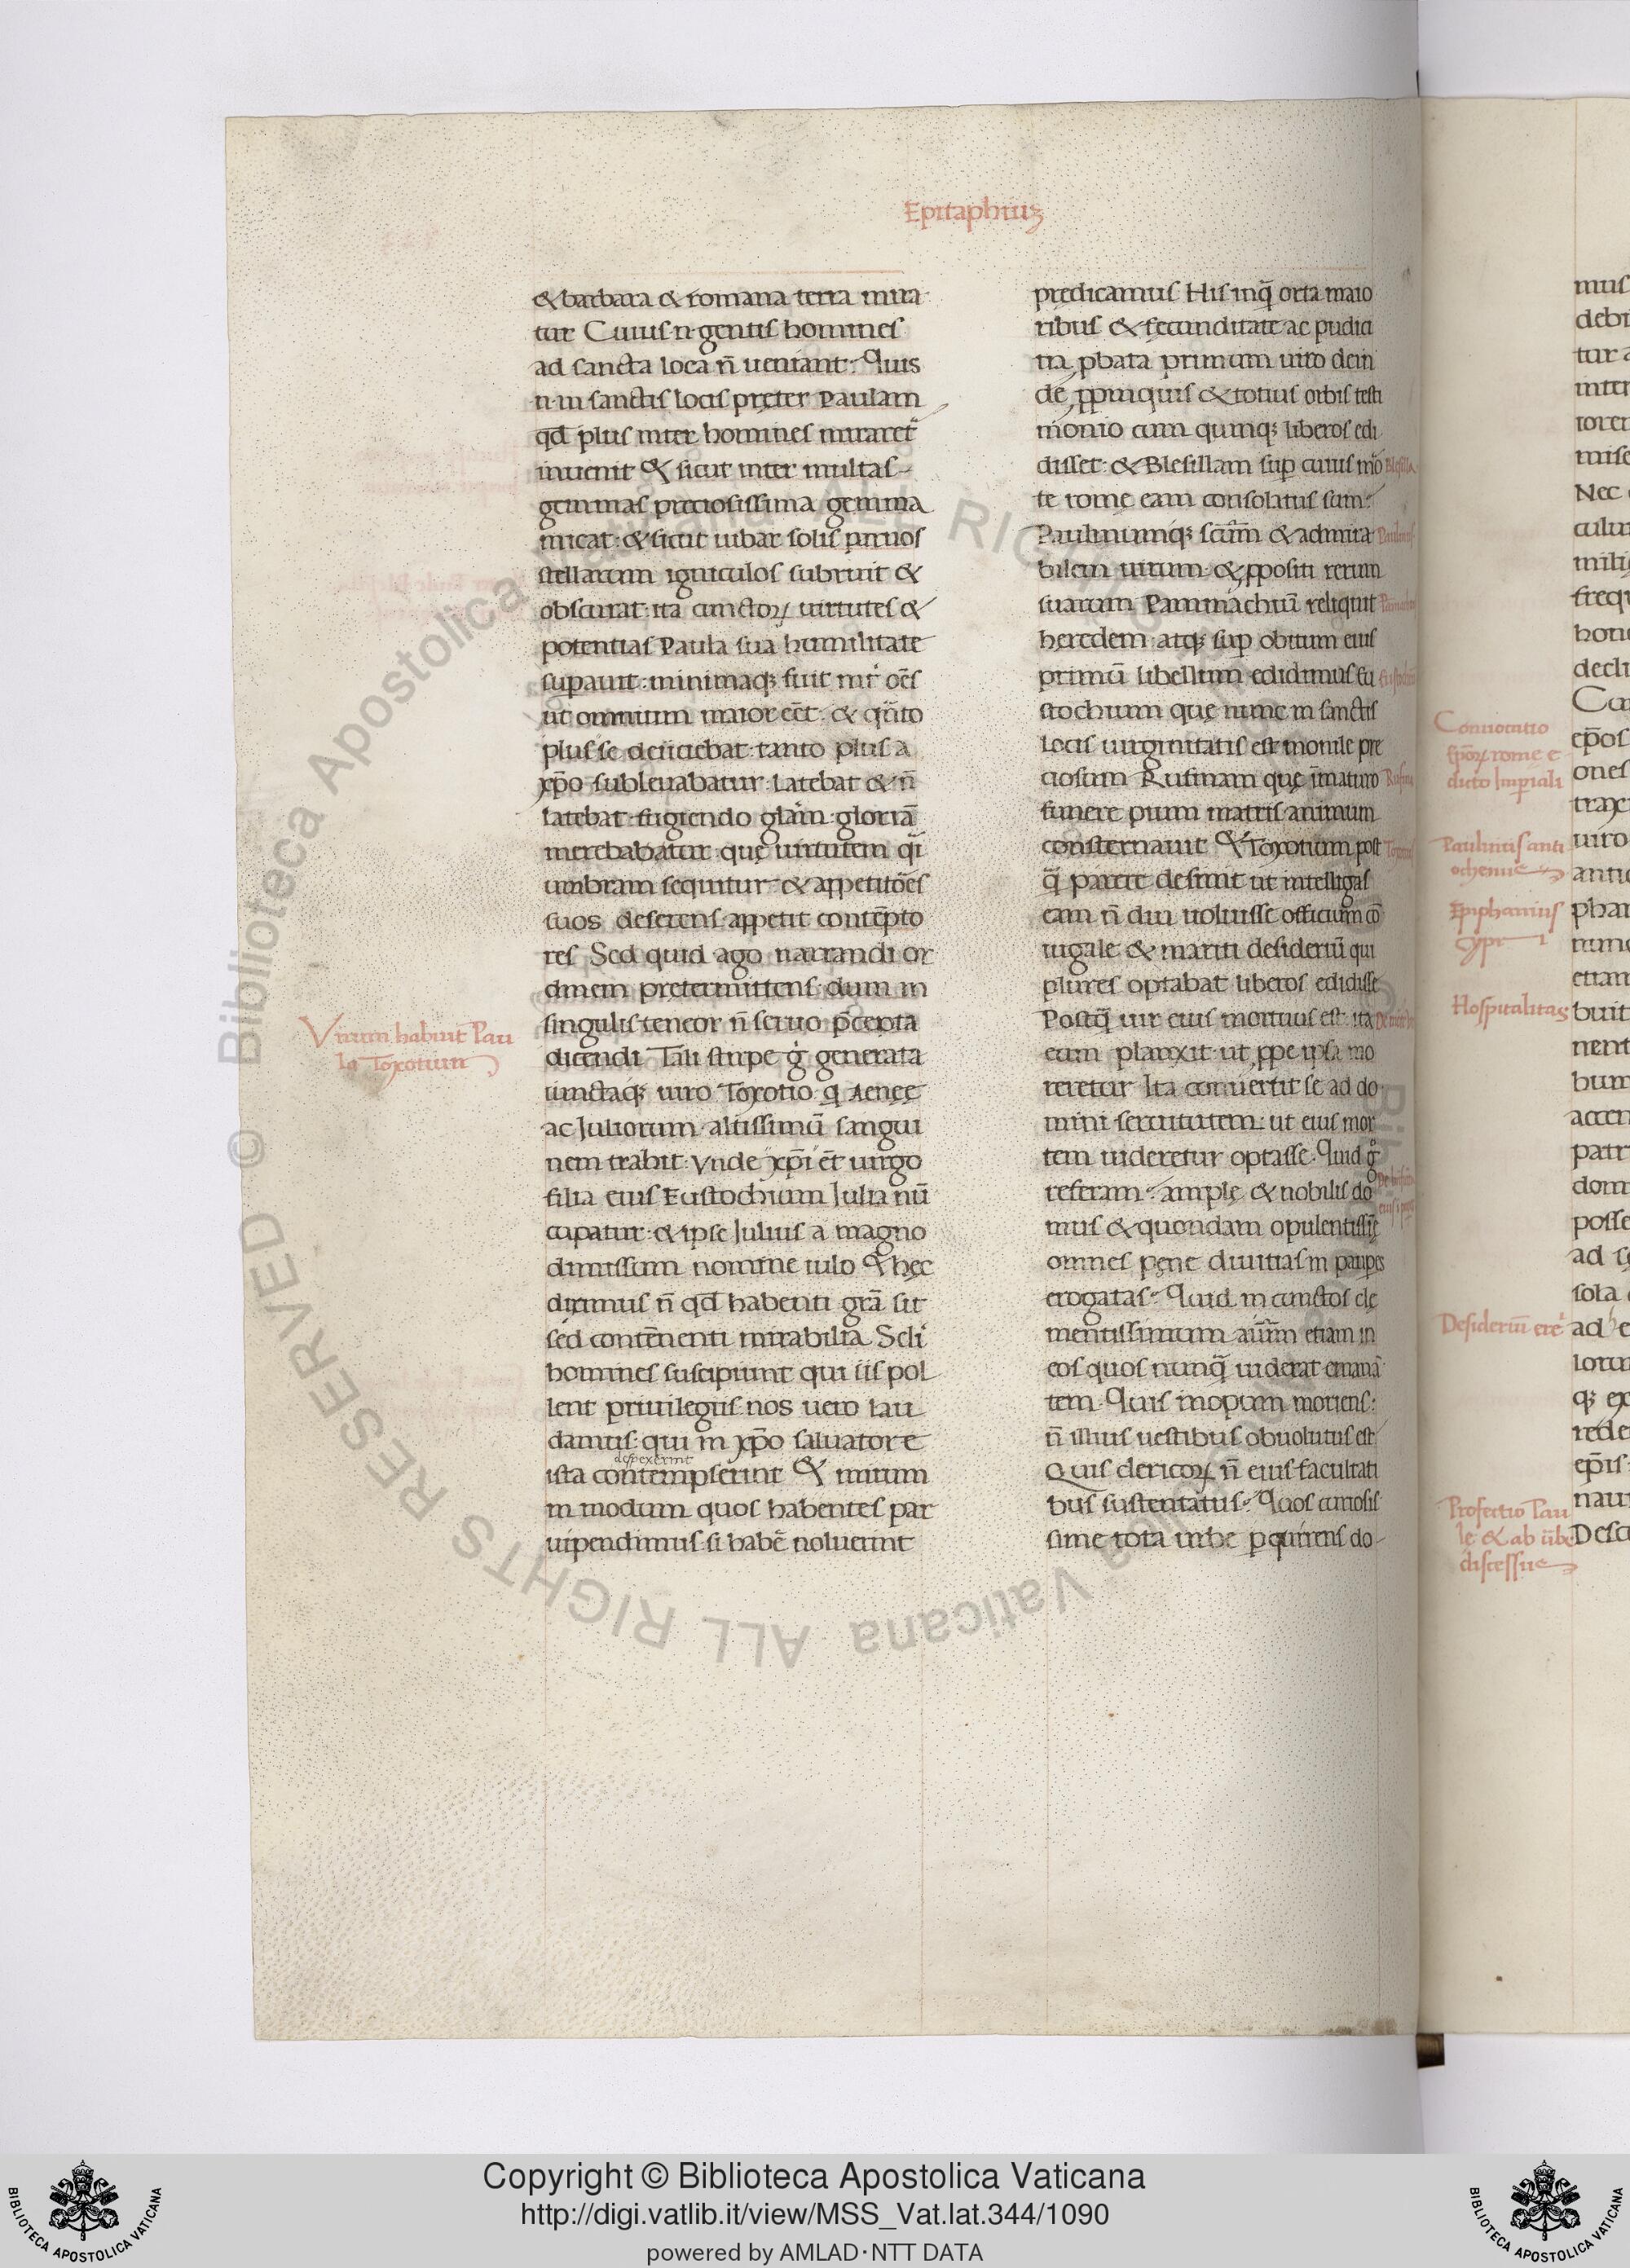 Epitaphiuʒ
& barbara & romana terra mira
tur Cuius n̄ gentis homines
ad sancta loca n̄ ueniant. Quis
n. in sanctis locis pręter Paulam
qđ plus inter homines miraret̃
inuenit Et sicut inter multas
gemmas preciosissima gemma
micat. & sicut iubar solis paruos
stellarum igniculos subruit &
obscurat. ita cunctoꝝ uirtutes &
potentias Paula sua humilitate
supauit. minimaqꝫ fuit int̃ oēs
ut omnium maior eēt. & qn̄to
plus se deiiciebat. tanto plus a
xp̄o subleuabatur. Latebat & n̄
latebat. fugiendo glām. gloriā
merebabatur. quę uirtutem q̄i
umbram sequitur. & appetitōes
suos deserens. appetit contēpto
res Sed quid ago narrandi or
dinem pretermittens. dum in
singulis teneor n̄ seruo p̄cepta
dicendi Tali stirpe g̊ generata
iunctaqꝫ uiro Toxotio. q̇ Aenęę
ac Juliorum altissimū sangui
nem trahit. Vnde xp̄i ēt uirgo
filia eius Eustochium Julia nū
cupatur. & ipse Julius a magno
dimissum nomine iulo Et hęc
diximus n̄ qđ habenti grā sit
sed contēnenti mirabilia. Seĺi
homines suscipiunt qui iis pol
lent priuilegiis. nos uero lau
damus. qui in xp̄o saluatore
depexerint
ista contempserint Et mirum
in modum quos habentes par
uipendimus. si habē noluerint
Virum habuit Pau
la Toxotium
predicamus His inq̄ orta maio
ribus & fecunditate ac pudici
tia ꝓbata primum uiro dein
de ꝓpinquis & totius orbis testi
monio cum quinqꝫ liberos edi
disset. & Blesillam suꝑ cuius mo
te rome eam consolatus sum.
Paulinumqꝫ sc̄m̄ & admira
bilem uirum. & ꝓpositi rerum
suarum Pammachiū reliquit
heredem. atqꝫ suꝑ obitum eius
primū libellum edidimus Eu
stochium quę nunc in sanctis
locis uirginitatis est monile pre
ciosum Rufinam quę īmaturo
funere pium matris animum
consternauit Et Toxotium post
q̄ parere desiuit ut intelligas
eam n̄ diu uoluisse officium cō
iugale & mariti desideriū qui
plures optabat liberos edidisse
Postq̄ uir eius mortuus est. ita
eum planxit. ut ꝓpe ipsa mo
reretur Ita conuertit se ad do
mini seruitutem. ut eius mor
tem uideretur optasse. Quid g̊
referam. amplę & nobilis do
mus & quondam opulentissi͞ę
omnes pęne diuitias in pauꝑes
erogatas. Quid in cunctos cle
mentissimum aīum etiam in
eos quos nunq̄ uiderat emanā
tem. Quis inopum moriens.
n̄ illius uestibus obuolutus est
Quis clericoꝝ n̄ eius facultati
bus sustentatus. Quos curiosis
sime tota urbe ꝑquirens do
Blesilla
Rufina
Conuocatio
ep̄oꝝ rome e
dicto Imperiali
Paulinus anti
ochenus
Epiphanius
cypri
Hospitalitas
Desideriū ere
Profectio Pau
le & ab urbe
discessus
Copyright © Biblioteca Apostolica Vaticana
http://digi.vatlib.it/view/MSS_Vat.lat.344/1090
powered by AMLAD·NTT DATA